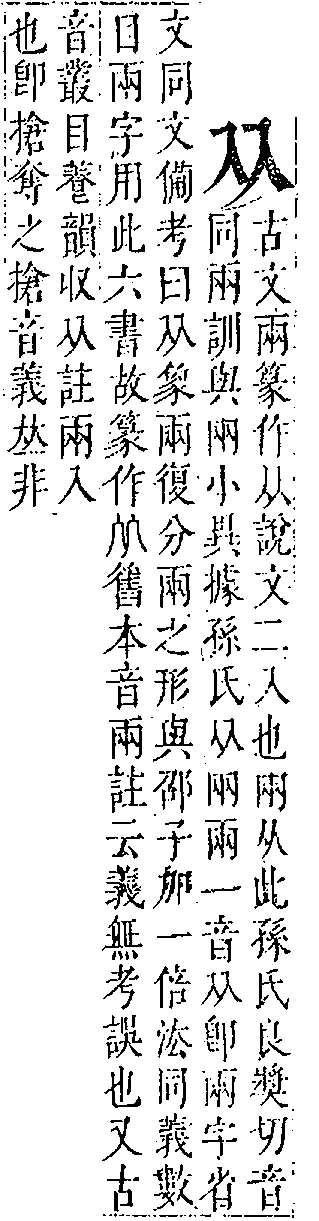 𠓜
古文兩篆作𠓜說文二入也兩从此孫氏良奬切音
同兩訓與㒳小異據孫氏𠓜㒳兩一音𠓜卽兩字省
文同文備考曰𠓜象兩復分兩之形與邵子加一倍法同義數
目兩字用此六書故篆作𠓜舊本音兩註云義無考誤也又古
音叢目養韻收𠓜註兩入
也卽搶奪之搶音義𠀤非